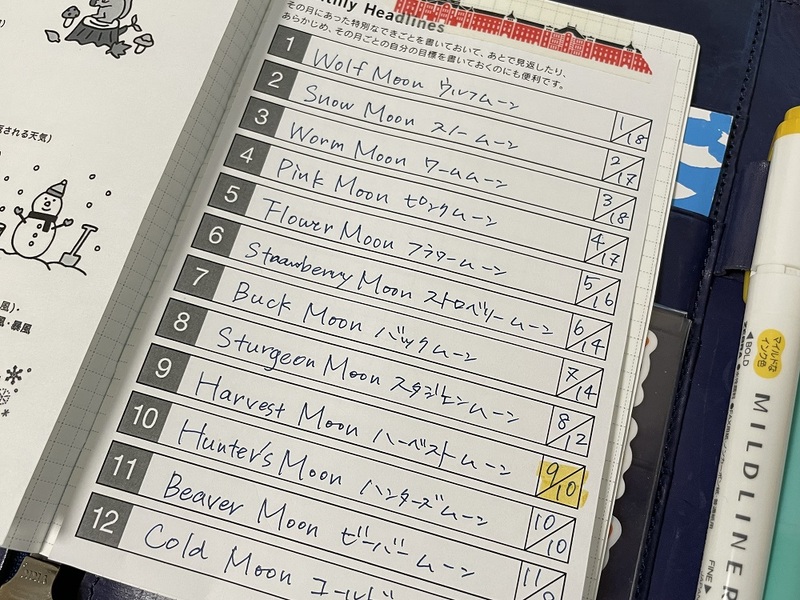 thly Headlines
その月にあった特別なできごとを書いておいて、あとで見返したり、
あらかじめ、その月ごとの自分の目標を書いておくのにも便利です。
1 Wolf Moon ウルフムーン 1/18
2 Snow Moon スノームーン 2/17
3 Worm Moon ワームムーン 3/18
4 Pink Moon ピンクムーン 4/17
5 Flower Moon フラワームーン 5/16
6 Strawberry Moon ストロベリームーン 6/14
7 Buck Moon バックムーン 7/14
8 Sturgeon Moon スタジョンムーン 8/12
9 Harvest Moon ハーベストムーン 9/10
10 Hunter's Moon ハンターズムーン 10/10
11 Beaver Moon ビーバームーン 11/
12 Cold Moon コールド
される天気)
風)・
風・暴風
BOLD
マイルドな
インク色
MILDLINER
FINE